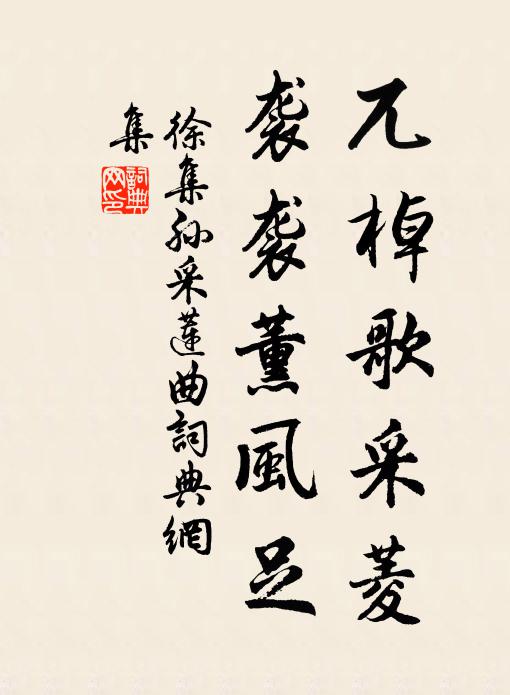 兀棹歌采菱
袭袭薰風足
徐集孙采蓮曲詞典網
集
詞典
网印